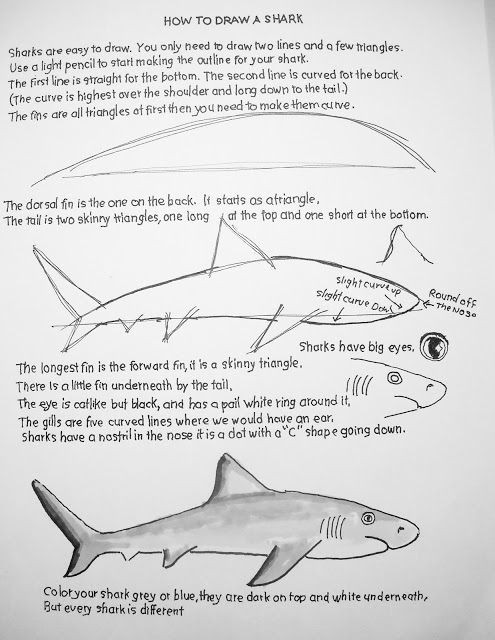 HOW TO DRAW A SHARK
Sharks are easy to draw. You only need to draw two lines and a few triangles.
Use a light pencil to start making the outline for your shark.
The first line is straight for the bottom. The second line is curved for the back.
(The curve is highest over the shoulder and long down to the tail.)
The fins are all triangles at first then you need to make them curve.
The dorsal fin is the one on the back. It starts as a triangle.
The tail is two skinny triangles, one long at the top and one short at the bottom.
slight curve up
slight curve Down
Round off
The Nose
Sharks have big eyes.
The longest fin is the forward fin, it is a skinny triangle.
There is a little fin underneath by the tail.
The eye is catlike but black, and has a pail white ring around it.
The gills are five curved lines where we would have an ear.
Sharks have a nostril in the nose it is a dot with a "C" shape going down.
Color your shark grey or blue, they are dark on top and white underneath,
But every shark is different